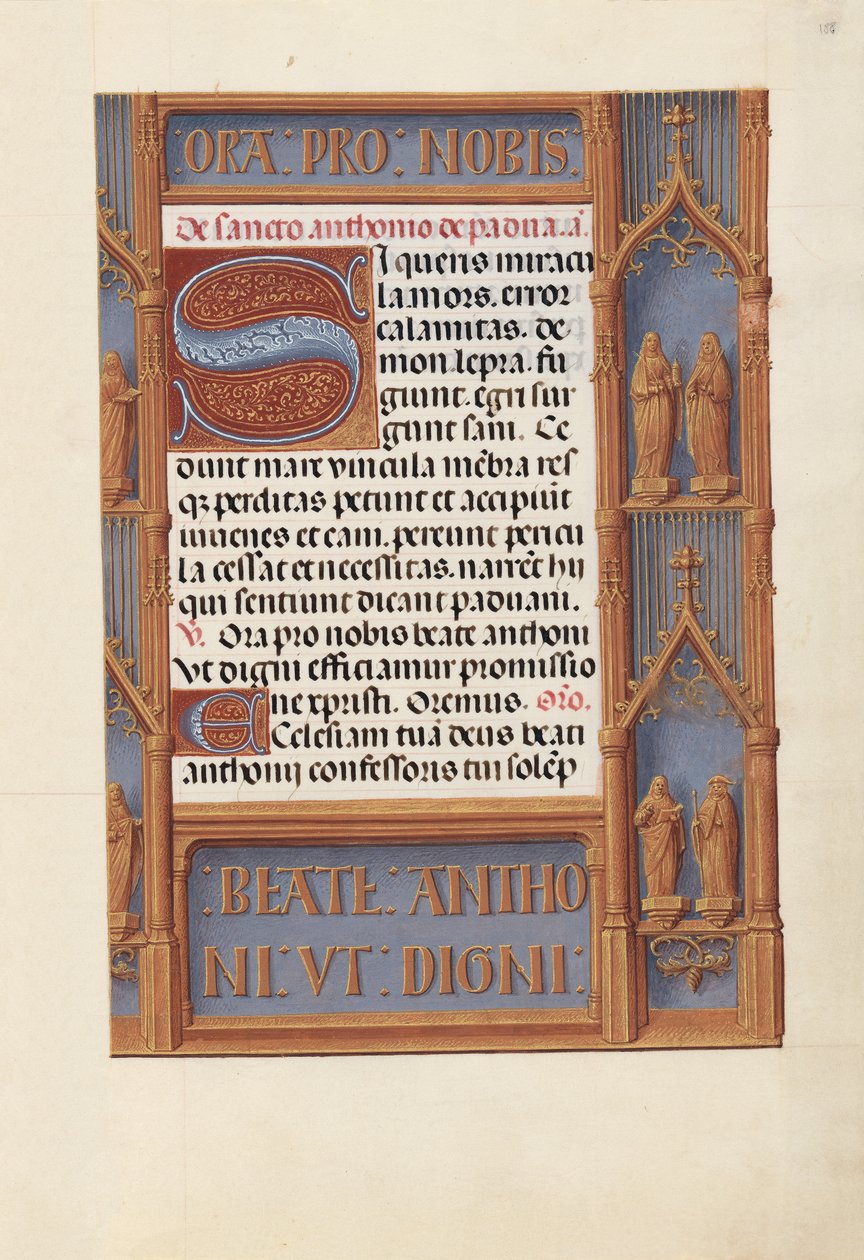 186
:ORA : PRO : NOBIS :
De sancto anthonio de padua. a̅.
Si queris miracu
la mors. error
calamitas. de
mon lepra. fu
giunt. egri sur
gunt sani. Ce
dunt mare vincula me̅bra res
qꝫ perditas petunt et accipiu̅t
iuuenes et cani. pereunt pericu
la cessat et necessitas. narre̅t hij
qui sentiunt dicant paduani.
V̅. Ora pro nobis beate anthoni
Vt digni efficiamur promissio
ne xpristi. Oremus. Or̅o.
Ecclesiam tua̅ deus beati
anthonij confessoris tui sole̅p
: BEATE : ANTHO
NI : VT : DIGNI :